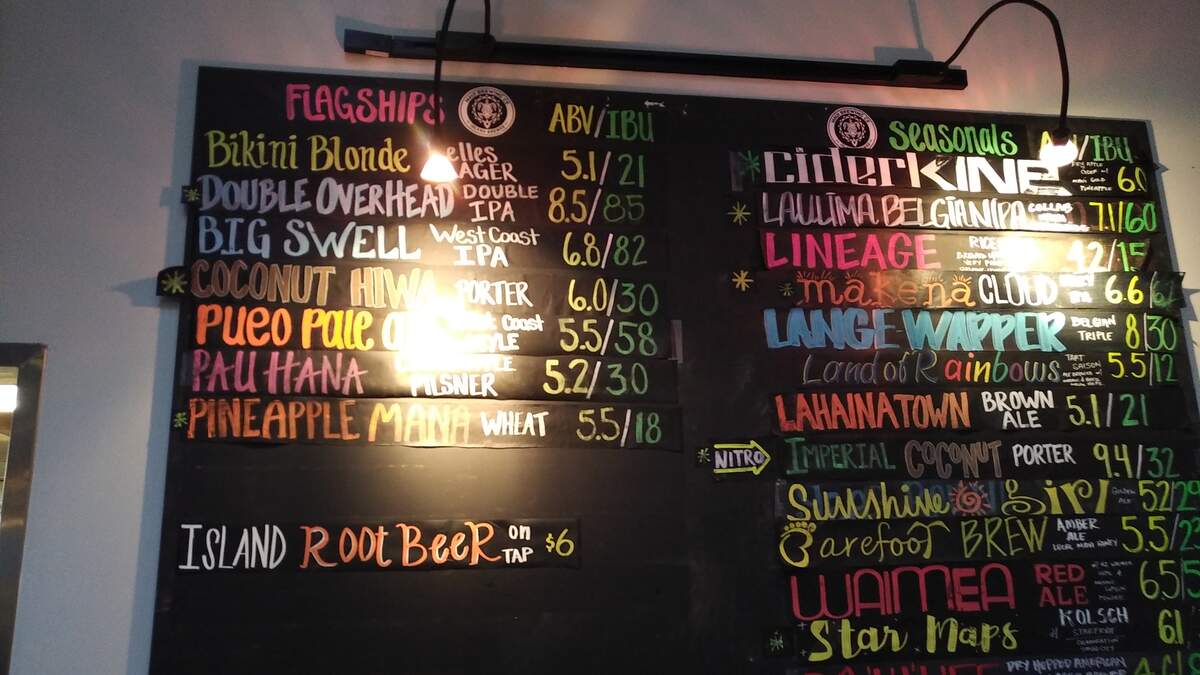 FLAGSHIPS ABV/IBU
Bikini Blonde 5.1/21
DOUBLE OVERHEAD DOUBLE IPA 8.5/85
BIG SWELL West Coast IPA 6.8/82
COCONUT HIWA PORTER 6.0/30
PUEO PALE Coast 5.5/58
PAU HANA PILSNER 5.2/30
PINEAPPLE MANA WHEAT 5.5/18
ISLAND ROOT BEER on TAP $6
Seasonals /IBU
ciderKINE DRY APPLE CIDER W/ MAUI GOLD PINEAPPLE 6.0
LAULIMA BELGIAN IPA COLLAB 7.1/60
LINEAGE 15
makena CLOUD 6.6
LANGE WAPPER BELGIAN TRIPLE 8/30
Land of Rainbows TART SAISON 5.5/12
LAHAINATOWN BROWN ALE 5.1/21
NITRO IMPERIAL COCONUT PORTER 9.4/32
Sunshine girl GOLDEN ALE 52/
Barefoot BREW AMBER ALE LOCAL MAUI HONEY 5.5/
WAIMEA RED ALE 6.5
Star Maps KOLSCH 61
DRY HOPPED AMERICAN